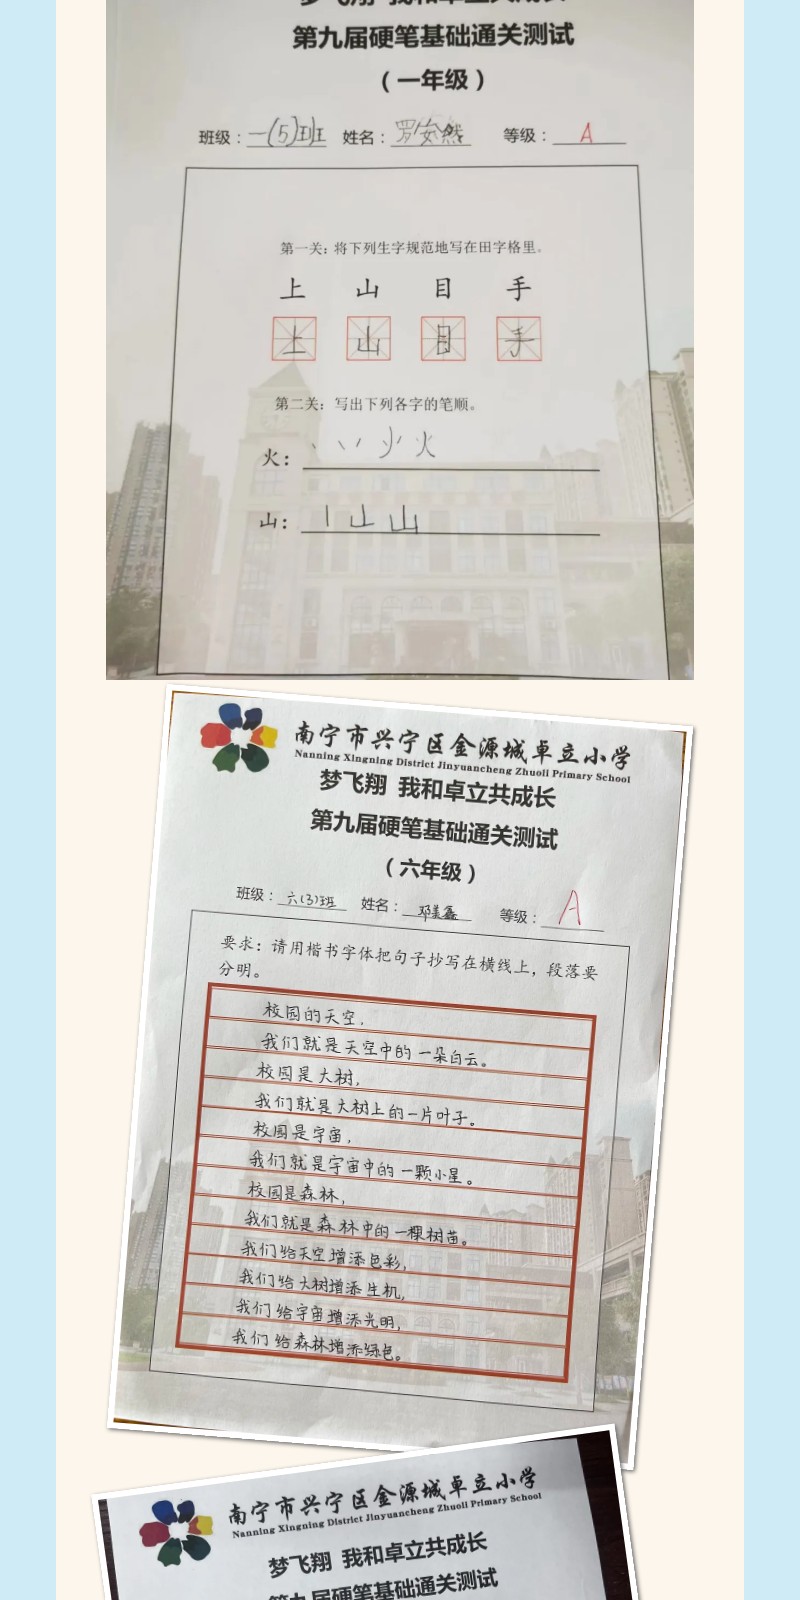 梦飞翔 我和卓立共成长
第九届硬笔基础通关测试
（一年级）
班级：一(5)班 姓名：罗安然 等级：A
第一关：将下列生字规范地写在田字格里。
上 山 目 手
上 山 目 手
第二关：写出下列各字的笔顺。
火：
山：
南宁市兴宁区金源城卓立小学
Nanning Xingning District Jinyuancheng Zhuoli Primary School
梦飞翔 我和卓立共成长
第九届硬笔基础通关测试
（六年级）
班级：六(3)班 姓名：邓美鑫 等级：A
要求：请用楷书字体把句子抄写在横线上，段落要
分明。
校园的天空，
我们就是天空中的一朵白云。
校园是大树，
我们就是大树上的一片叶子。
校园是宇宙，
我们就是宇宙中的一颗小星。
校园是森林，
我们就是森林中的一棵树苗。
我们给天空增添色彩，
我们给大树增添生机，
我们给宇宙增添光明，
我们给森林增添绿色。
南宁市兴宁区金源城卓立小学
Nanning Xingning District Jinyuancheng Zhuoli Primary School
梦飞翔 我和卓立共成长
第九届硬笔基础通关测试